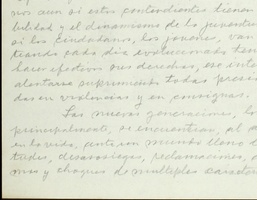 nos aun si estos contendientes tienen
bilidad y el dinamismo de la juventud
si los ciudadanos, los jovenes, van
tiendo cada día evolucionado ten
hacer efectivos sus derechos, ese inte
alentarse suprimiendo todas presio
das en violencias y en consignas.
Las nuevas generaciones, lo
principalmente, se encuentran, al
en la vida, ante un mundo lleno de
tudes, desasosiegos, reclamaciones,
mas y choques de multiples caracter